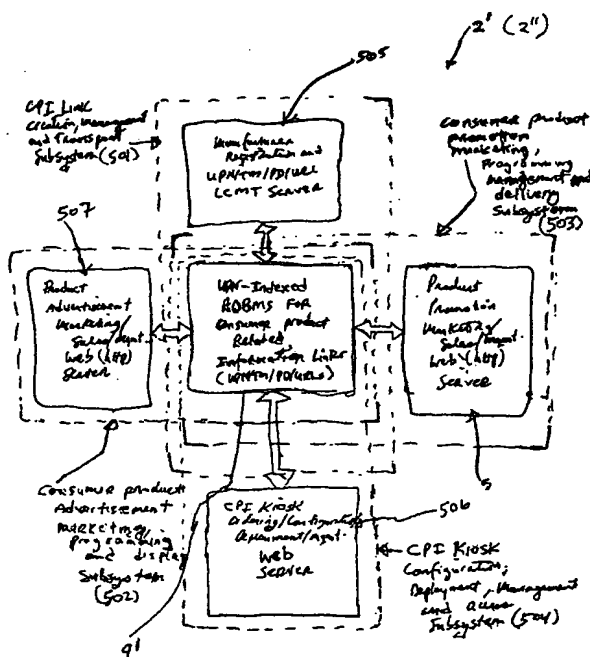 2' (2")
505
CPI Link
Creation, Management
and Transport
Subsystem (501)
Manufacturer
Registration and
UPN/TM/PD/URL
LCMT Server
Consumer product
promotion
marketing,
programming
management and
delivery
Subsystem
(503)
507
Product
Advertisement
Marketing/
Sales/Mgmt.
Web (http)
Server
UPN-Indexed
RDBMS For
Consumer product
Related
Information Links
(UPN/TM/PD/URLs)
Product
Promotion
Marketing/
Sales/Mgmt.
Web (http)
Server
5
Consumer product
Advertisement
marketing,
programming
and display
Subsystem
(502)
CPI Kiosk
Ordering/Configuration
Deployment/Mgmt.
Web
Server
506
CPI Kiosk
Configuration,
Deployment, Management
and Access
Subsystem (504)
9'